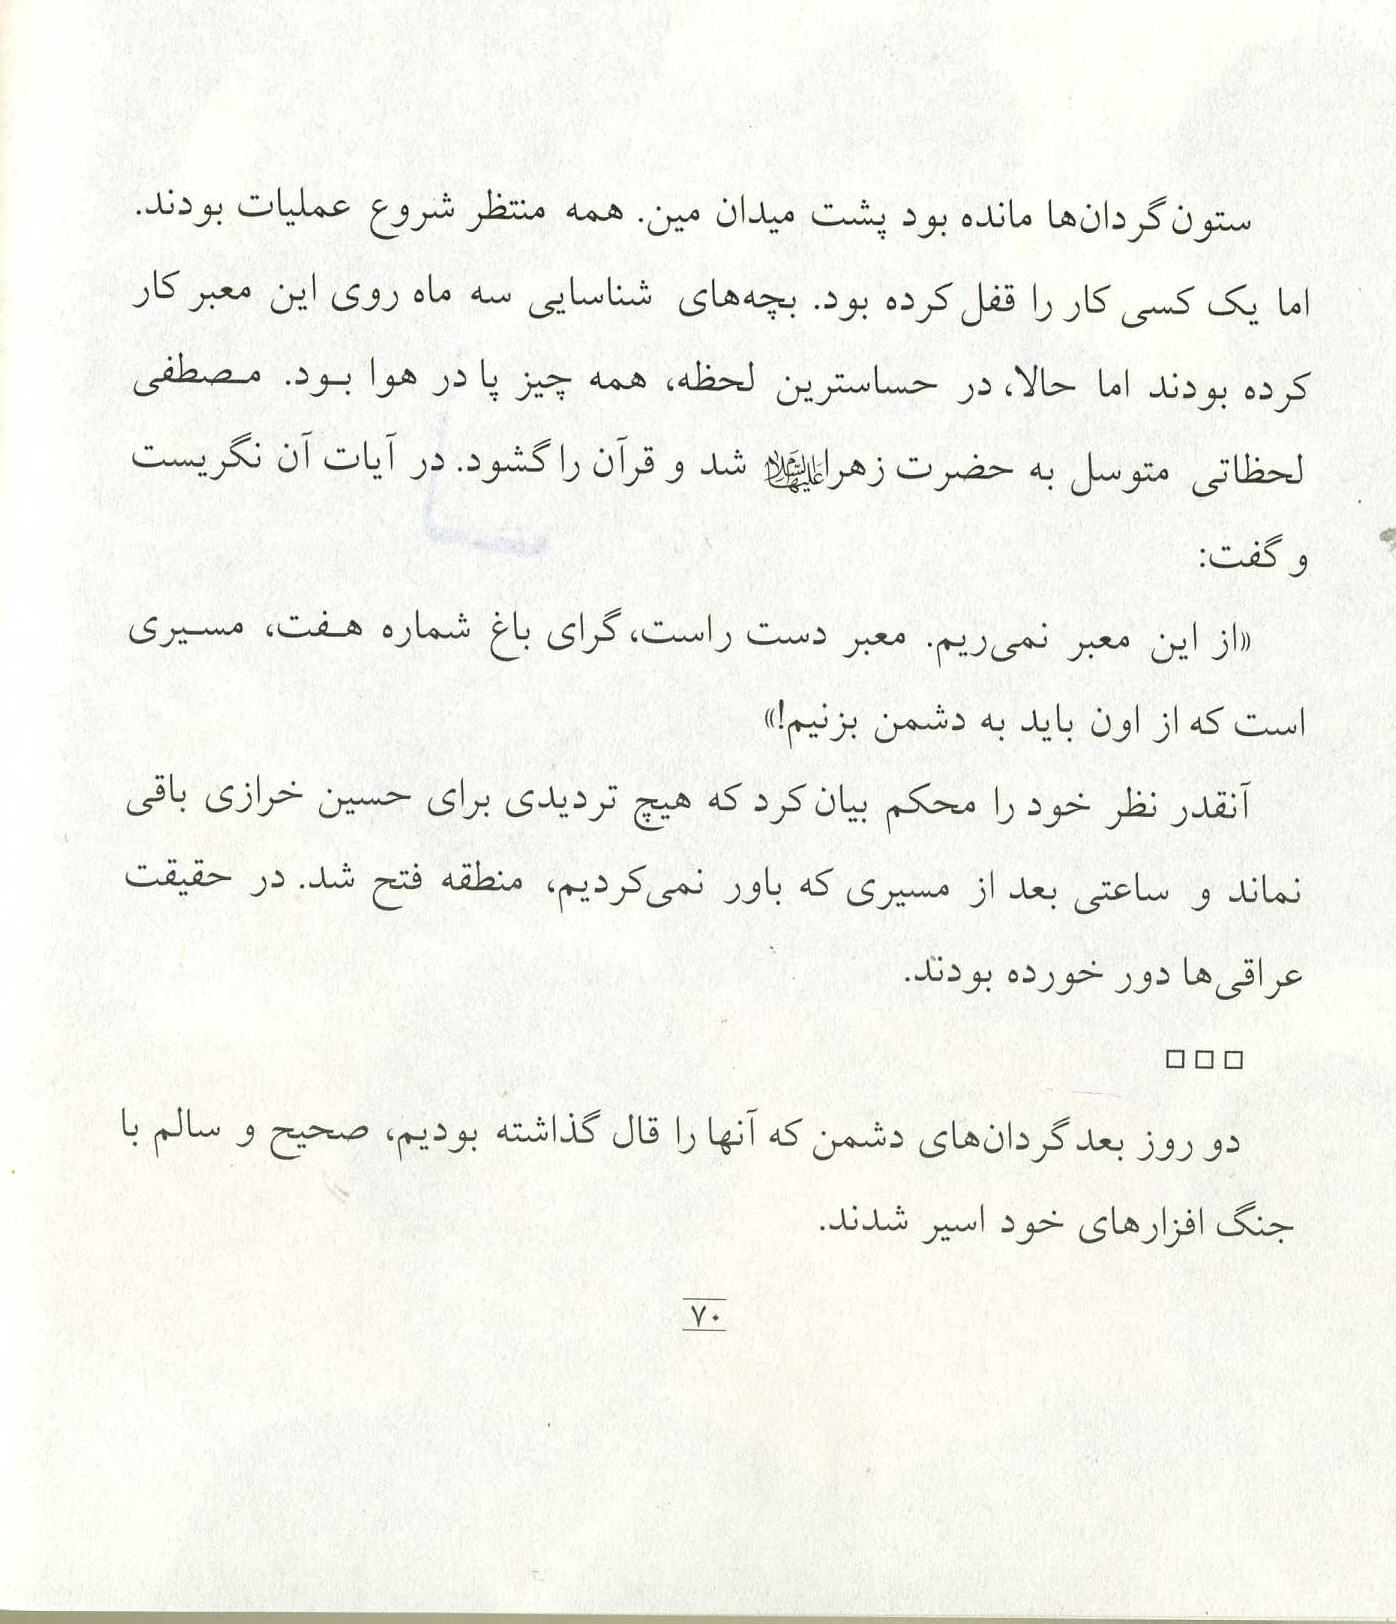 ستون گردان‌ها مانده بود پشت میدان مین. همه منتظر شروع عملیات بودند.
اما یک کسی کار را قفل کرده بود. بچه‌های شناسایی سه ماه روی این معبر کار
کرده بودند اما حالا، در حساسترین لحظه، همه چیز پا در هوا بود. مصطفی
لحظاتی متوسل به حضرت زهرا علیهاالسلام شد و قرآن را گشود. در آیات آن نگریست
و گفت:
«از این معبر نمی‌ریم. معبر دست راست، گرای باغ شماره هفت، مسیری
است که از اون باید به دشمن بزنیم!»
آنقدر نظر خود را محکم بیان کرد که هیچ تردیدی برای حسین خرازی باقی
نماند و ساعتی بعد از مسیری که باور نمی‌کردیم، منطقه فتح شد. در حقیقت
عراقی‌ها دور خورده بودند.
□ □ □
دو روز بعد گردان‌های دشمن که آنها را قال گذاشته بودیم، صحیح و سالم با
جنگ افزارهای خود اسیر شدند.
۷۰